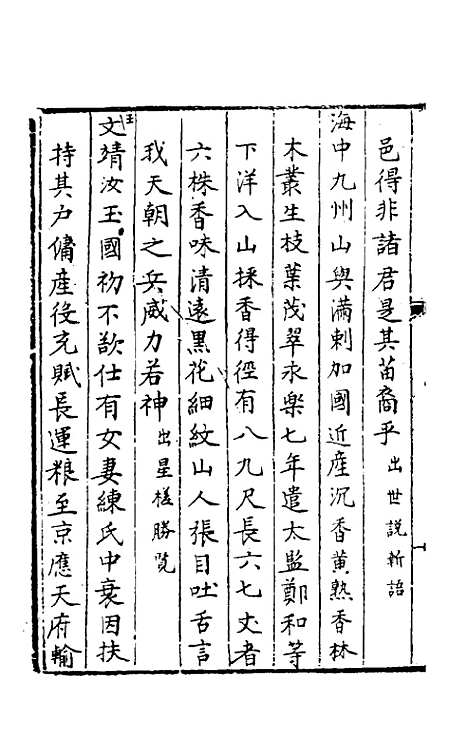 邑得非諸君是其苗裔乎 出世説新語
海中九州山與滿剌加國近産沉香黄熟香林
木叢生枝葉茂翠永樂七年遣太監鄭和等
下洋入山採香得徑有八九尺長六七丈者
六株香味清遠黒花細紋山人張目吐舌言
我天朝之兵威力若神 出星槎勝覽
王文靖汝玉國初不欲仕有女妻練氏中衰因扶
持其力傭産役充賦長運粮至京應天府輸